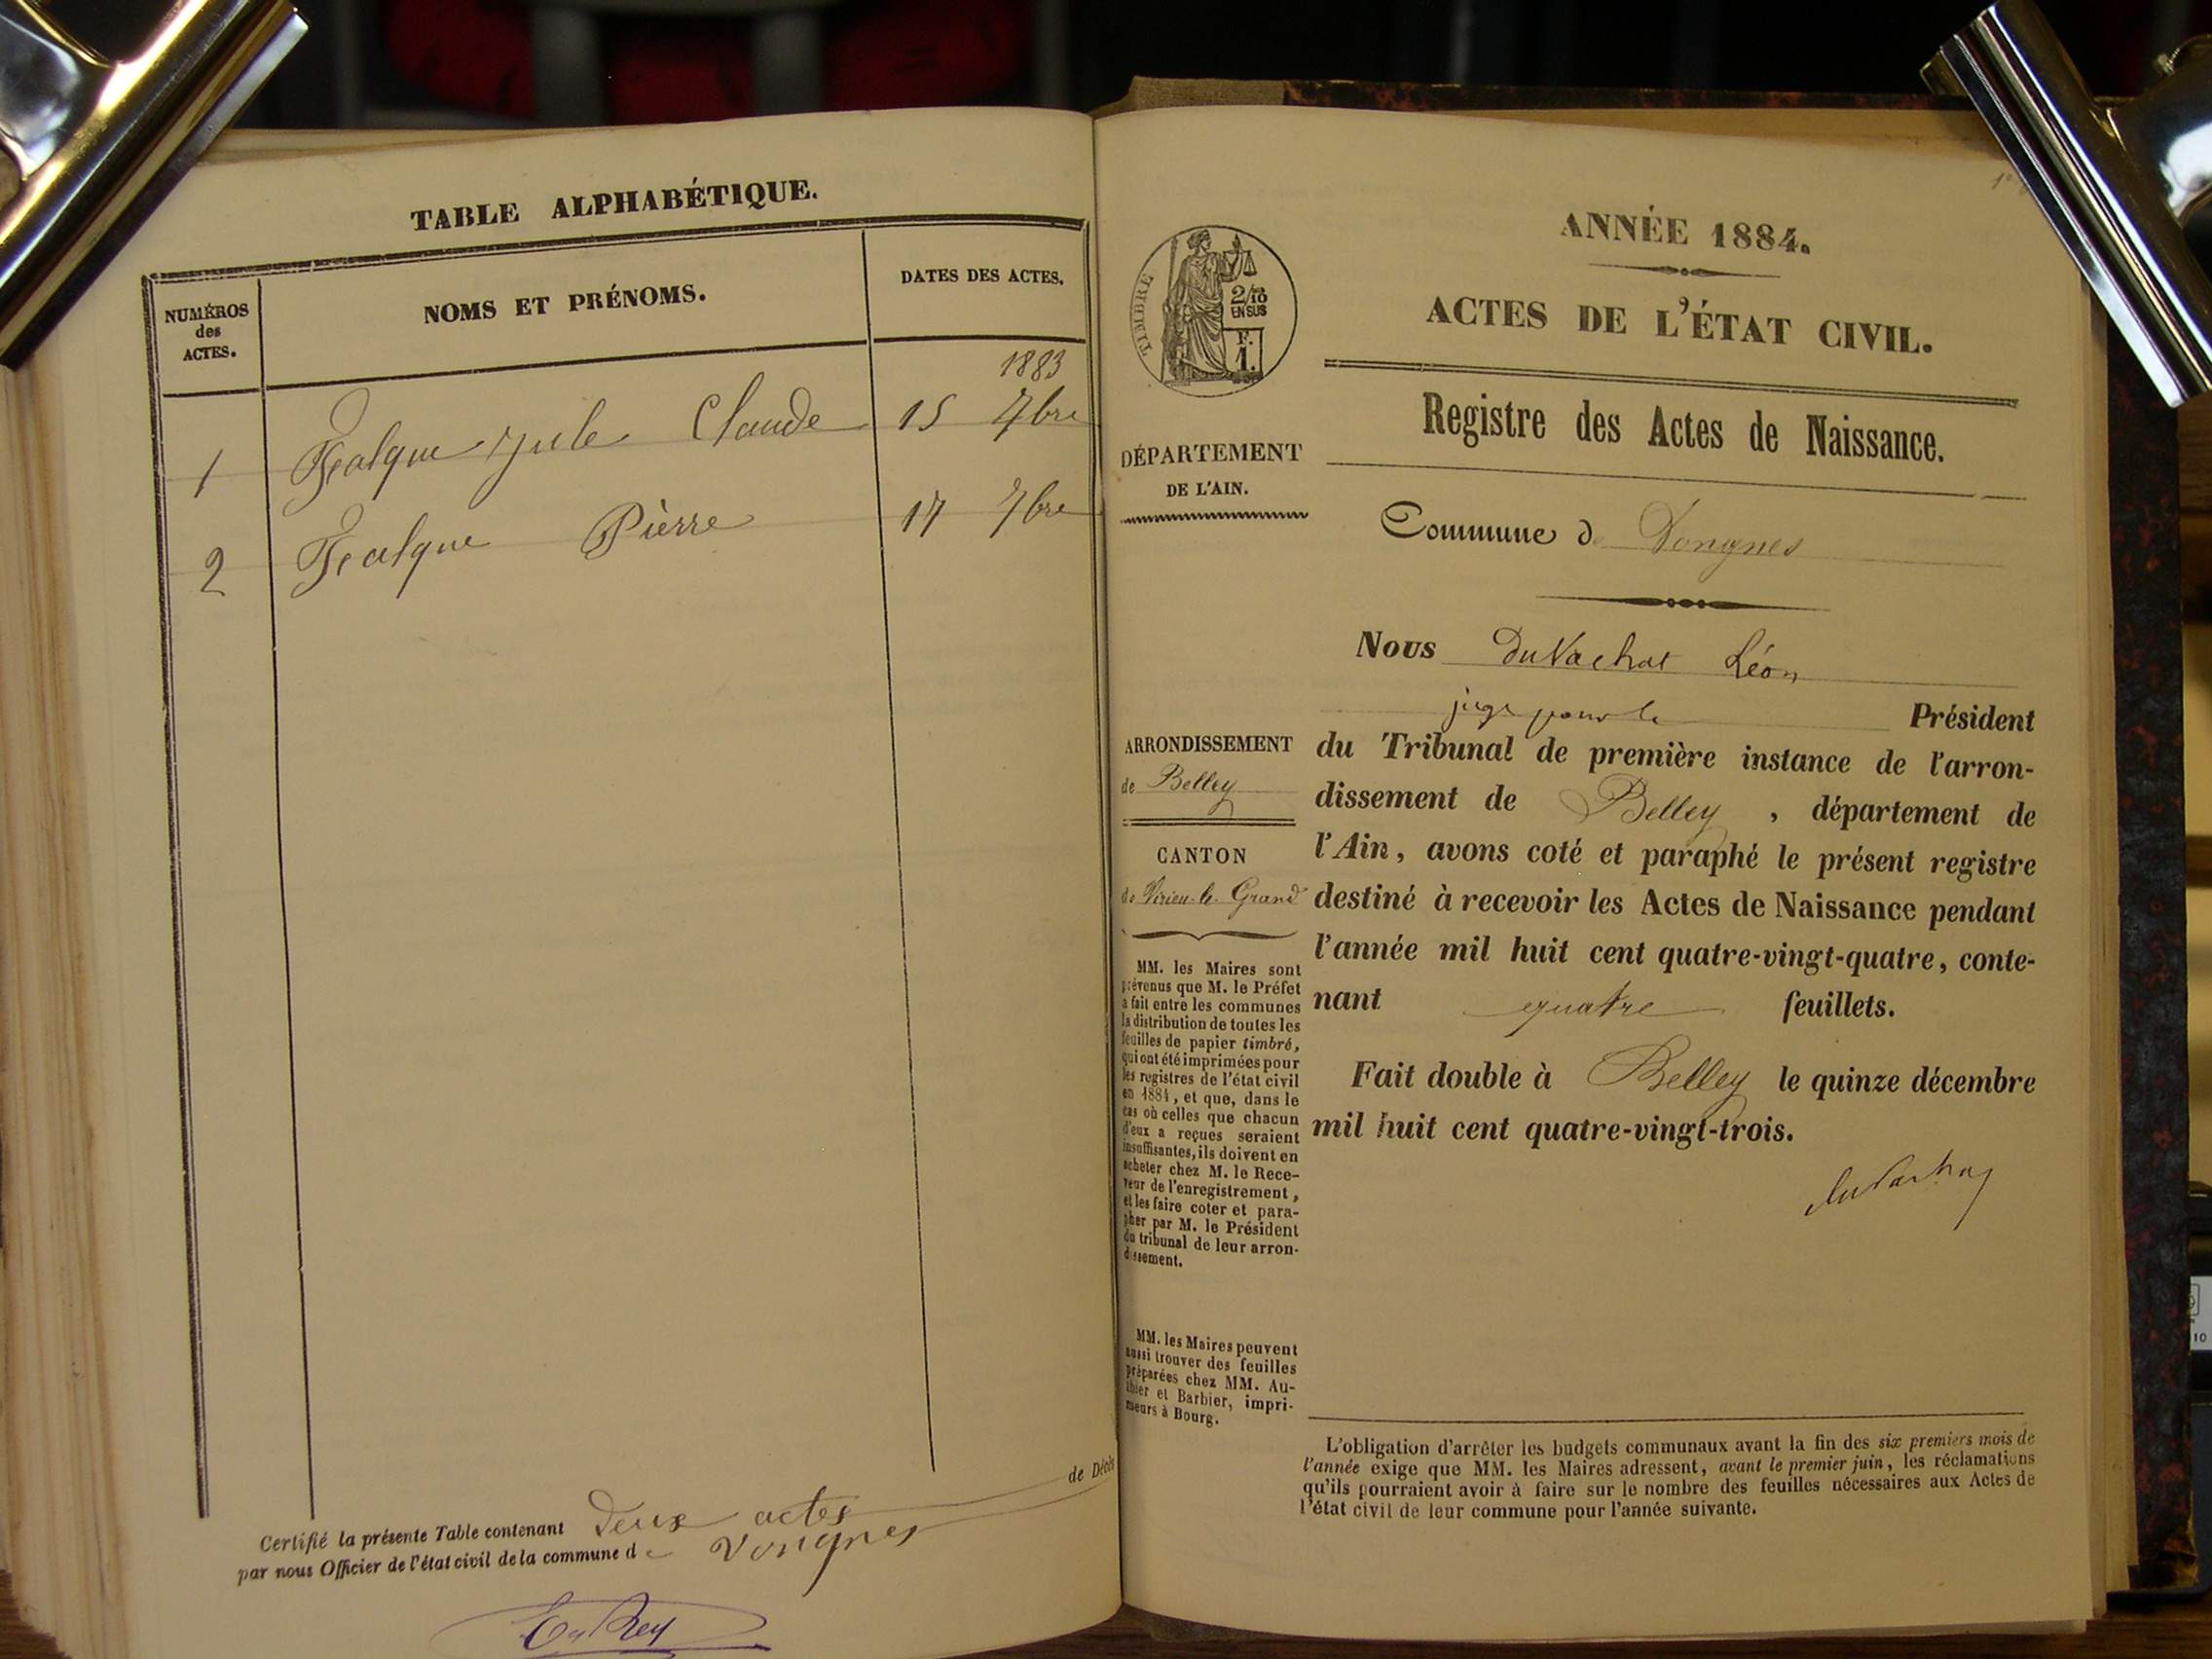 TABLE ALPHABÉTIQUE.
NUMÉROS
des
ACTES.
NOMS ET PRÉNOMS.
DATES DES ACTES.
1883
1 Falque Jule Claude 15 7bre
2 Falque Pierre 17 7bre
de Décès
Certifié la présente Table contenant Deux actes
par nous Officier de l'état civil de la commune de Vongnes
Rey
TIMBRE
2/10
EN SUS
F.
1.
DÉPARTEMENT
DE L'AIN.
ARRONDISSEMENT
de Belley
CANTON
de Virieu-le-Grand
MM. les Maires sont
prévenus que M. le Préfet
a fait entre les communes
la distribution de toutes les
feuilles de papier timbré,
qui ont été imprimées pour
les registres de l'état civil
en 1884, et que, dans le
cas où celles que chacun
d'eux a reçues seraient
insuffisantes, ils doivent en
acheter chez M. le Rece-
veur de l'enregistrement,
et les faire coter et para-
pher par M. le Président
du tribunal de leur arron-
dissement.
MM. les Maires peuvent
aussi trouver des feuilles
préparées chez MM. Au-
thier et Barbier, impri-
meurs à Bourg.
ANNÉE 1884.
ACTES DE L'ÉTAT CIVIL.
Registre des Actes de Naissance.
Commune de Vongnes
Nous DuVachat Léon
juge pour le Président
du Tribunal de première instance de l'arron-
dissement de Belley, département de
l'Ain, avons coté et paraphé le présent registre
destiné à recevoir les Actes de Naissance pendant
l'année mil huit cent quatre-vingt-quatre, conte-
nant quatre feuillets.
Fait double à Belley le quinze décembre
mil huit cent quatre-vingt-trois.
duVachat
L'obligation d'arrêter les budgets communaux avant la fin des six premiers mois de
l'année exige que MM. les Maires adressent, avant le premier juin, les réclamations
qu'ils pourraient avoir à faire sur le nombre des feuilles nécessaires aux Actes de
l'état civil de leur commune pour l'année suivante.